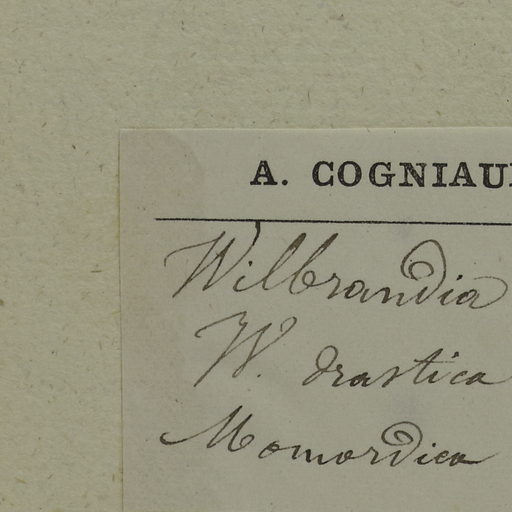 A. COGNIAU
Wilbrandia
W. drastica
Momordica